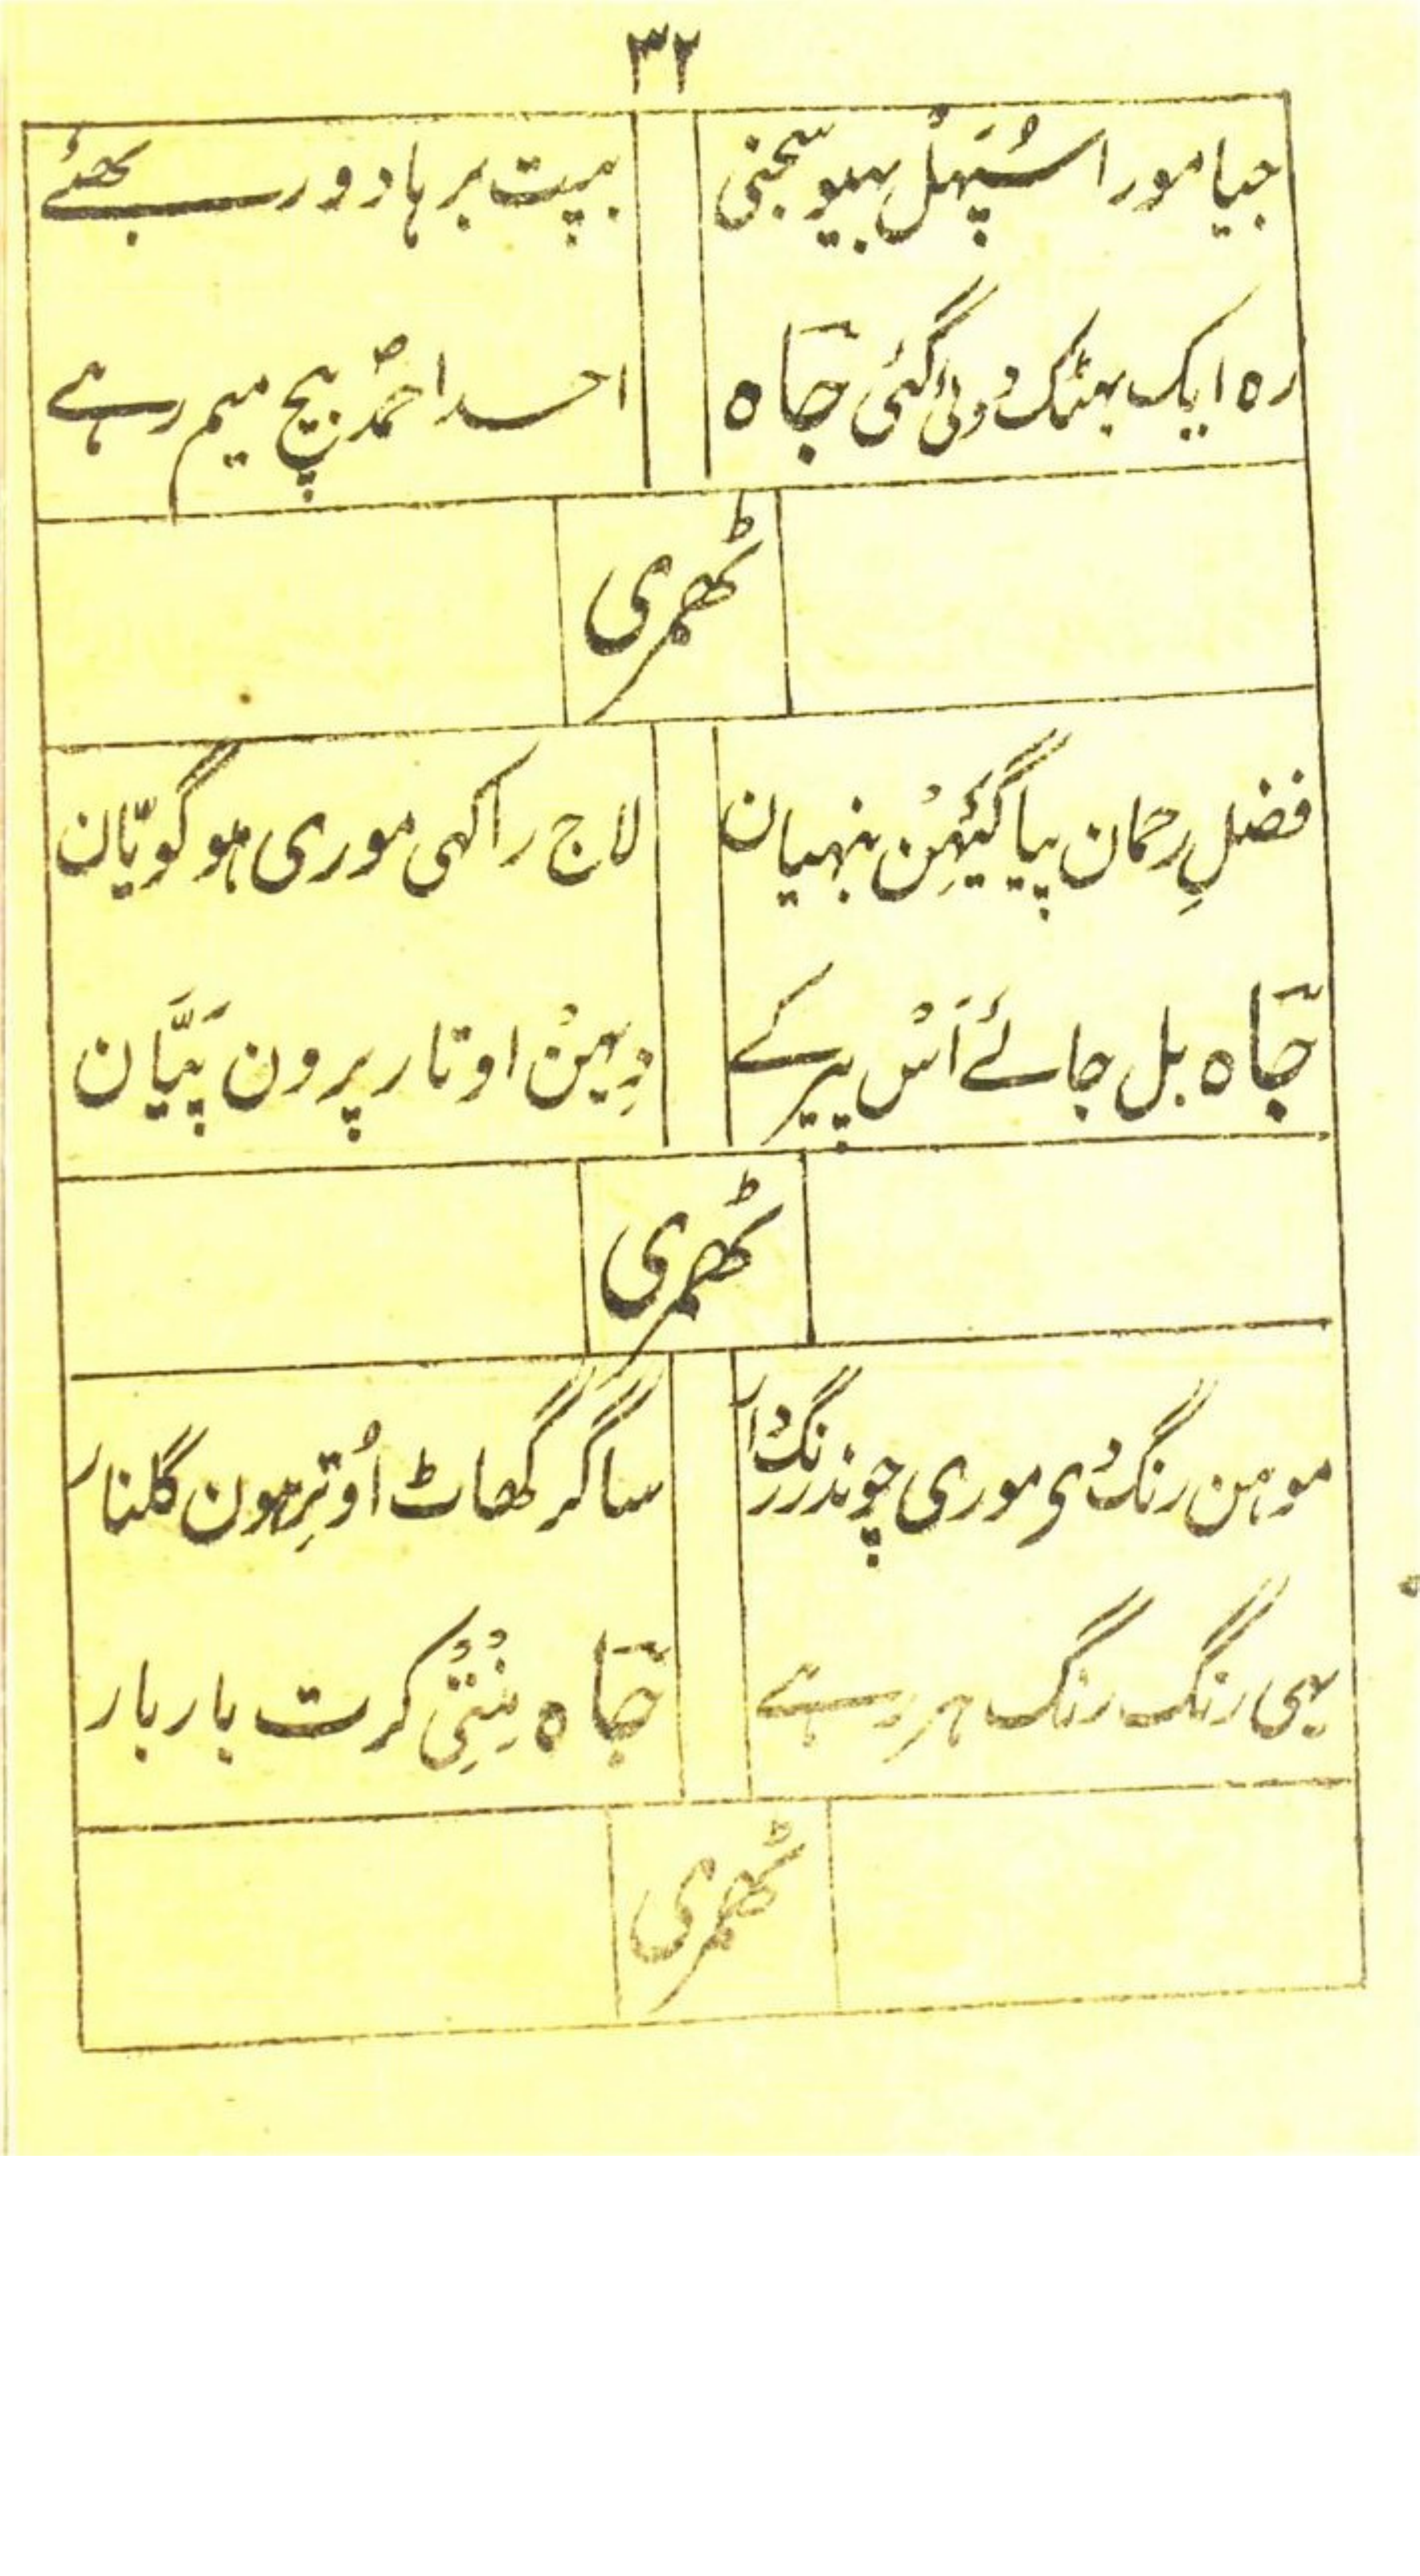 ۳۲
جیا مورا سُپَہَلْ بہیو سجنی
بپت برہا دور بھئے
رہ ایک بھٹک دوئی گئی جاہ
احد احمدؐ بیچ میم رہے
ٹھمری
فضلِ رحمان پیا گَیَہِنْ بنہیان
لاج راکھی موری ہو گویّان
جاہ بل جائے اَسْ پیر کے
دِہِینْ اوتار پرون پَیَّان
ٹھمری
موہن رنگ دی موری چوندر رنگدار
ساگر گھاٹ اُوترِہون گلنار
یہی رنگ رنگ ہر رہے
جاہ بِنْتِی کرت بار بار
ٹھمری